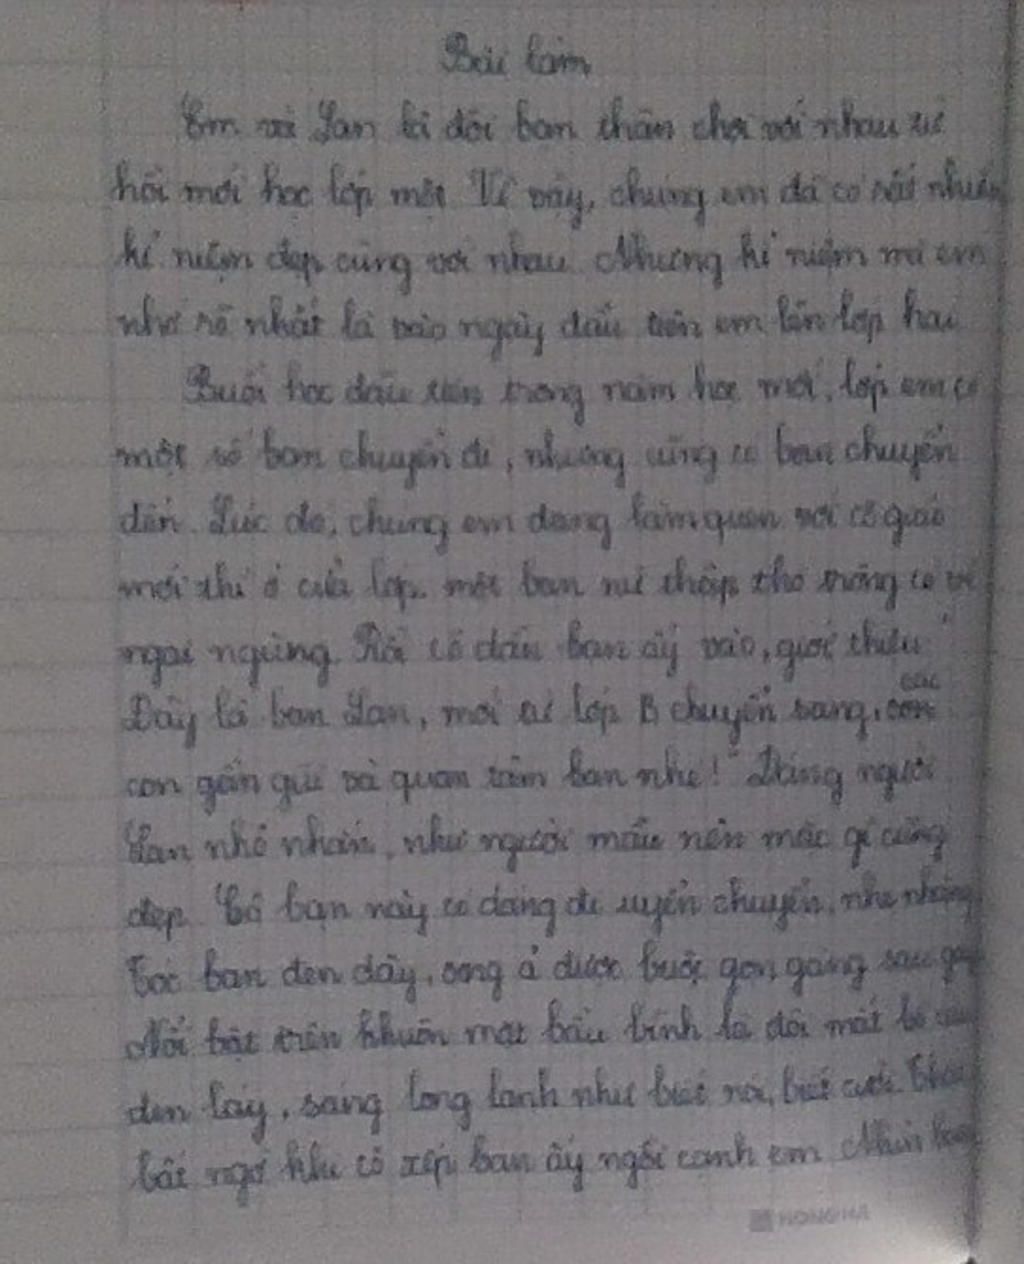 Bài làm
Em và Lan là đôi bạn thân chơi với nhau từ
hồi mới học lớp một. Vì vậy, chúng em đã có rất nhiều
kỉ niệm đẹp cùng với nhau. Nhưng kỉ niệm mà em
nhớ rõ nhất là vào ngày đầu tiên em lên lớp hai.
Buổi học đầu tiên trong năm học mới, lớp em có
một số bạn chuyển đi, nhưng cũng có bạn chuyển
đến. Lúc đó, chúng em đang làm quen với cô giáo
mới thì ở cửa lớp, một bạn nữ thập thò trông có vẻ
ngại ngùng. Rồi cô dẫn bạn ấy vào, giới thiệu "
Đây là bạn Lan, mới từ lớp B chuyển sang, các
con gần gũi và quan tâm bạn nhé!" Dáng người
Lan nhỏ nhắn, như người mẫu nên mặc gì cũng
đẹp. Cô bạn này có dáng đi uyển chuyển, nhẹ nhàng.
Tóc bạn đen dày, óng ả được buộc gọn gàng sau gáy.
Nổi bật trên khuôn mặt bầu bĩnh là đôi mắt bồ câu
đen láy, sáng long lanh như biết nói, biết cười.
bất ngờ khi cô xếp bạn ấy ngồi cạnh em. Nhìn
HONG HA